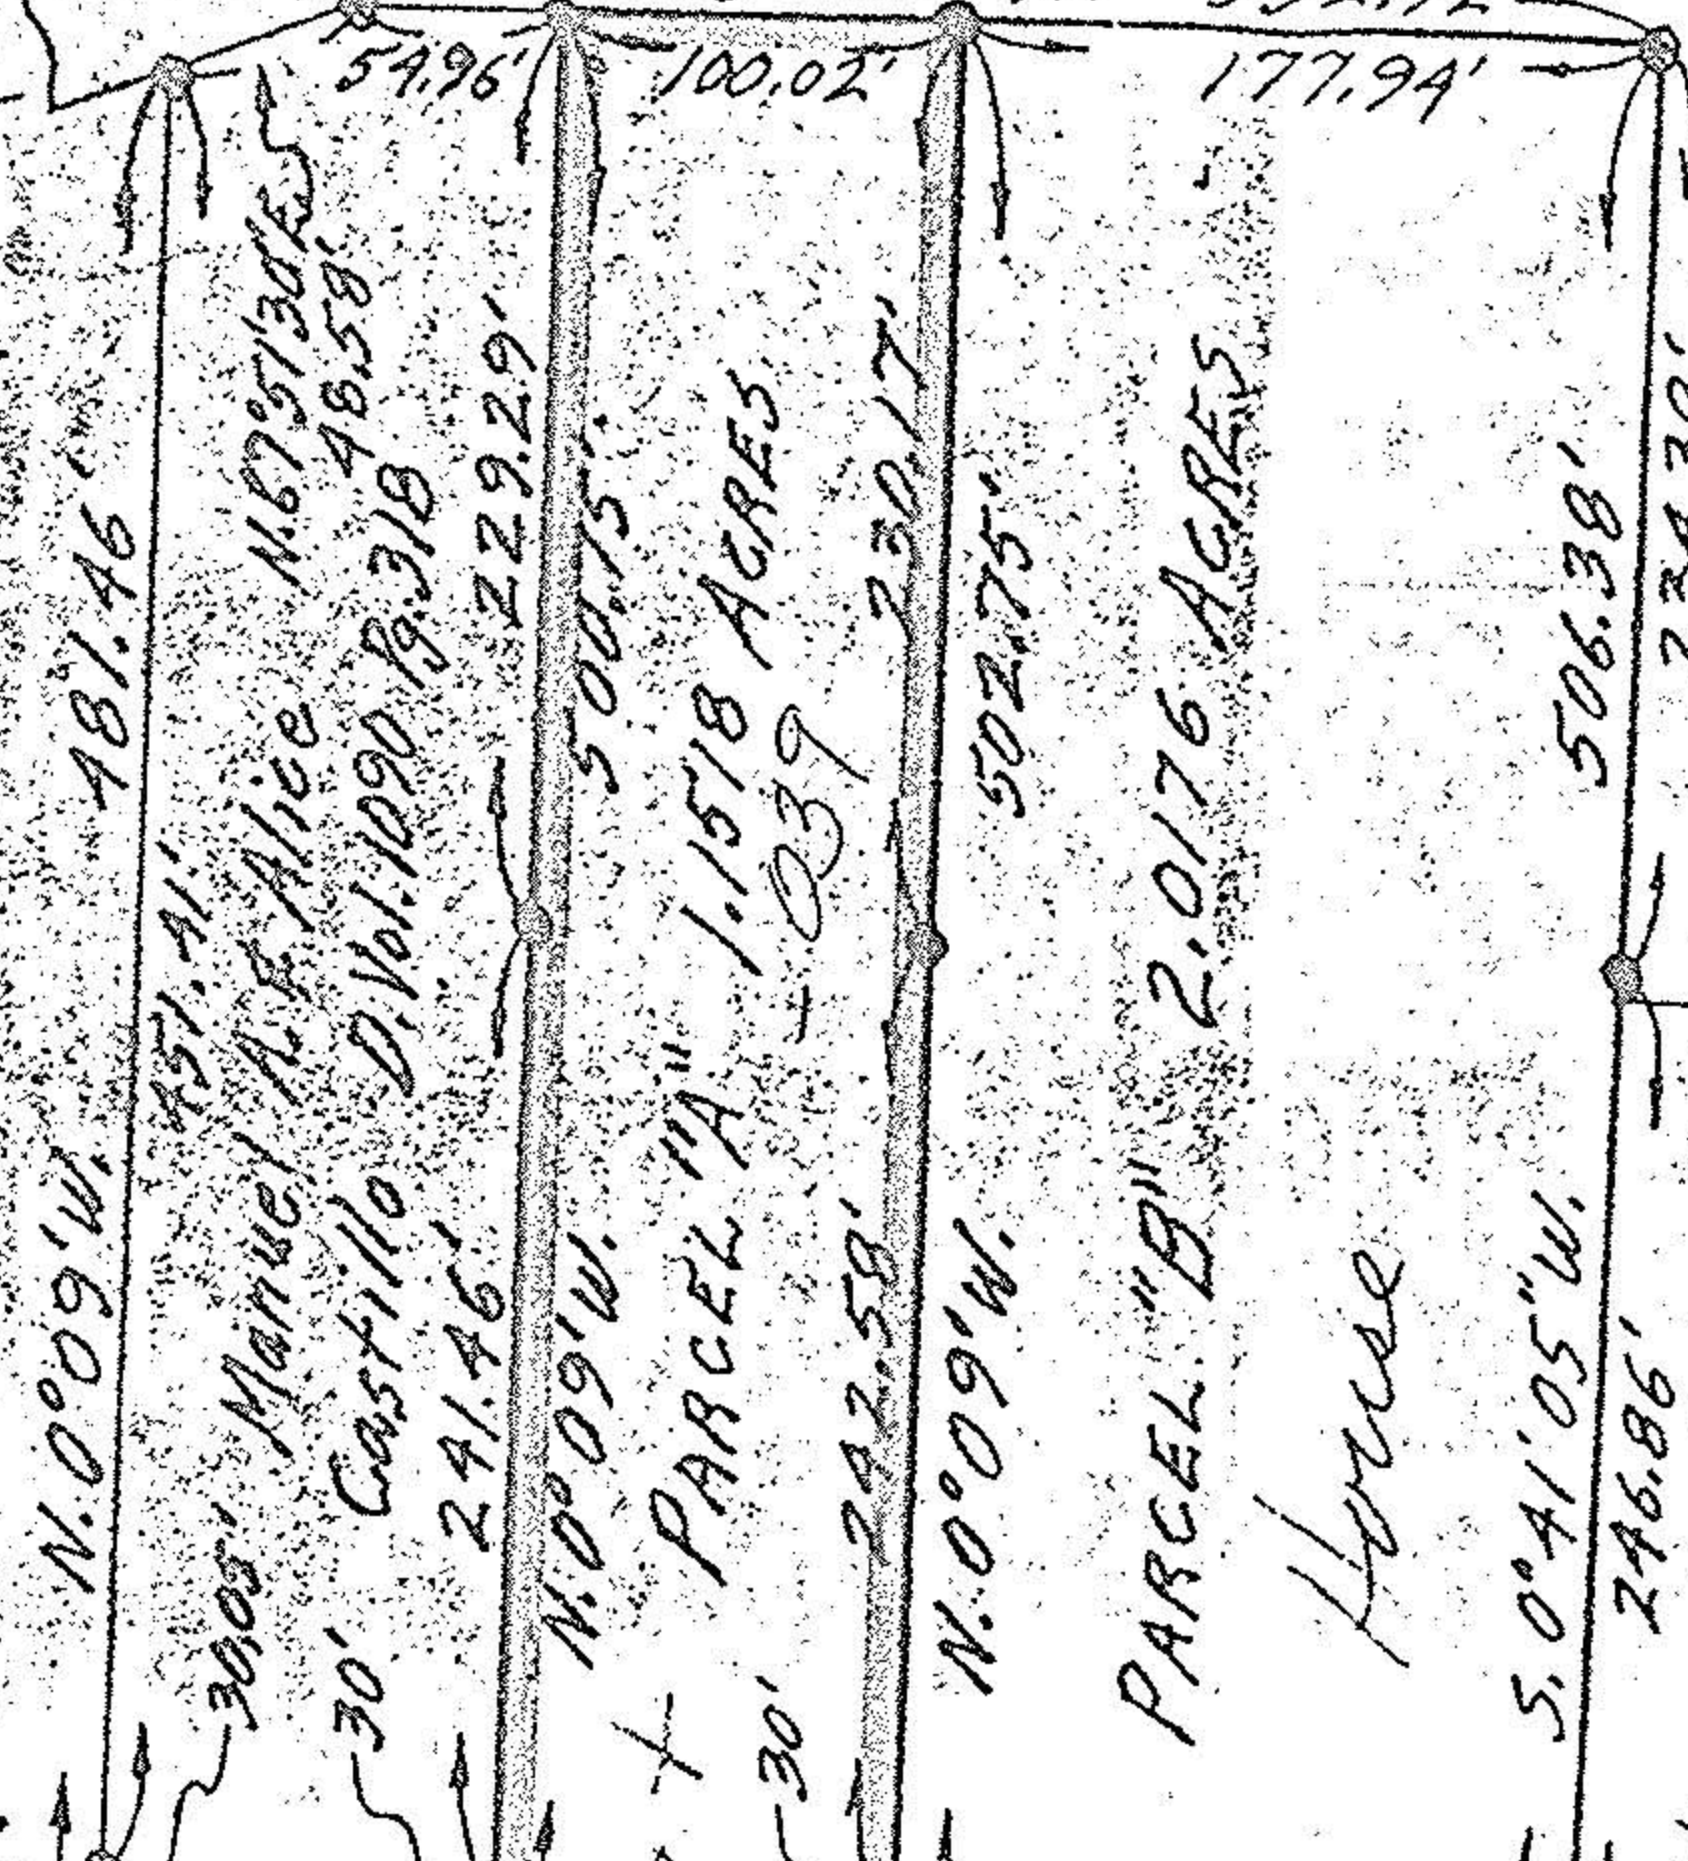 54.96'
100.02'
177.94'
N. 0°09'W.
481.46'
451.41'
N.67°51'30"E.
48.58'
Manuel A. & Alice
Castillo
D.Vol.1090 Pg.318
30.05'
30'
241.46'
229.29'
N.0°09'W.
500.15'
PARCEL "A" 1.1518 ACRES
-039
30'
242.58'
230.17'
N.0°09'W.
502.75'
PARCEL "B" 2.0176 ACRES
House
S. 0°41'05"W.
506.38'
246.86'